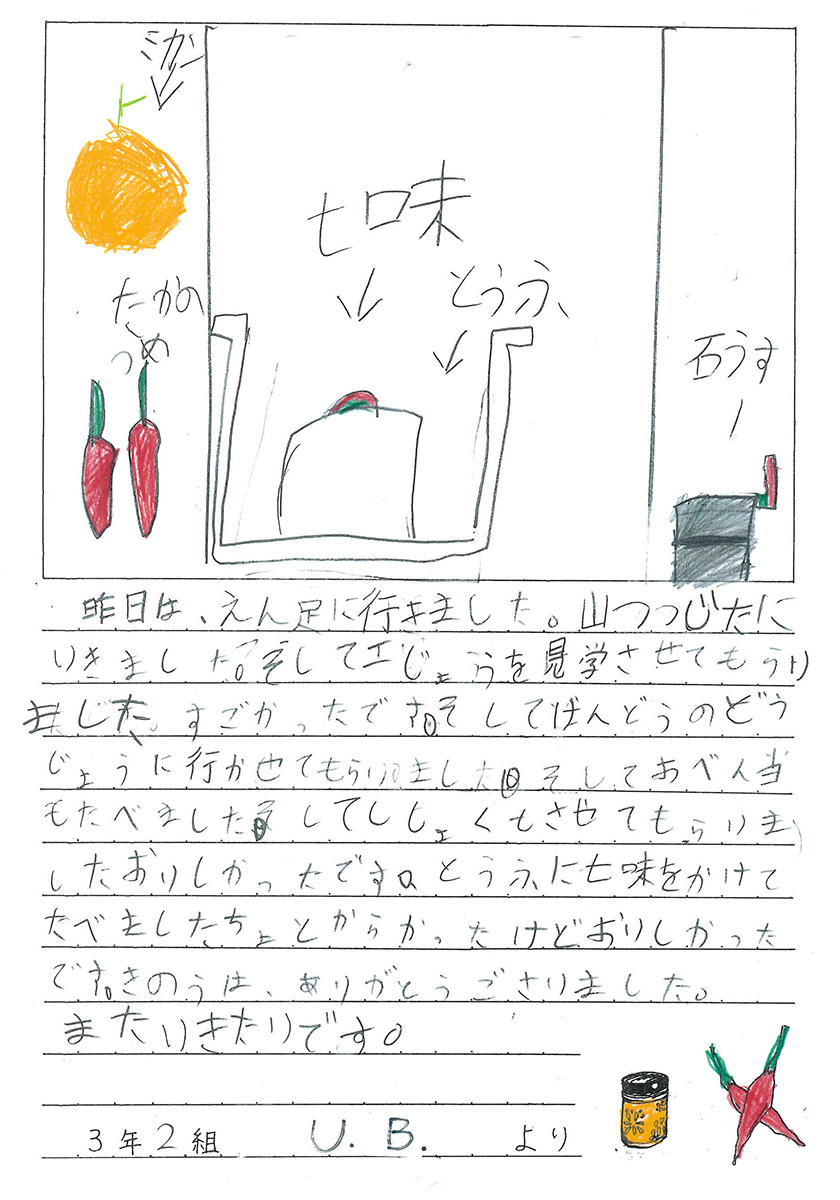 ミカン
七味
とうふ
たかの
つめ
石うす
昨日は、えん足に行きました。山つつじたに
いきました。そして工じょうを見学させてもらい
ました。すごかったです。そしてばんどうのどう
じょうに行かせてもらいました。そしておべん当
もたべました。そしてししょくもさせてもらいま
したおいしかったです。とうふに七味をかけて
たべましたちょとからかったけどおいしかった
です。きのうは、ありがとうごさいました。
またいきたいです。
3年2組 U. B. より